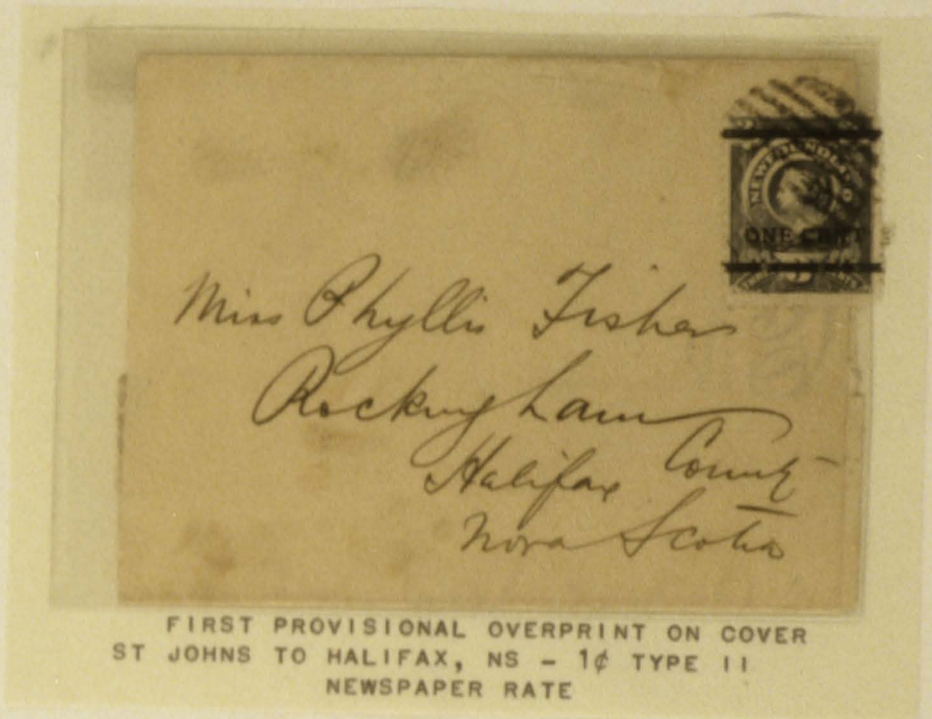 NEWFOUNDLAND
ONE CENT
Miss Phyllis Fisher
Rockingham
Halifax County
Nova Scotia
FIRST PROVISIONAL OVERPRINT ON COVER
ST JOHNS TO HALIFAX, NS - 1¢ TYPE II
NEWSPAPER RATE